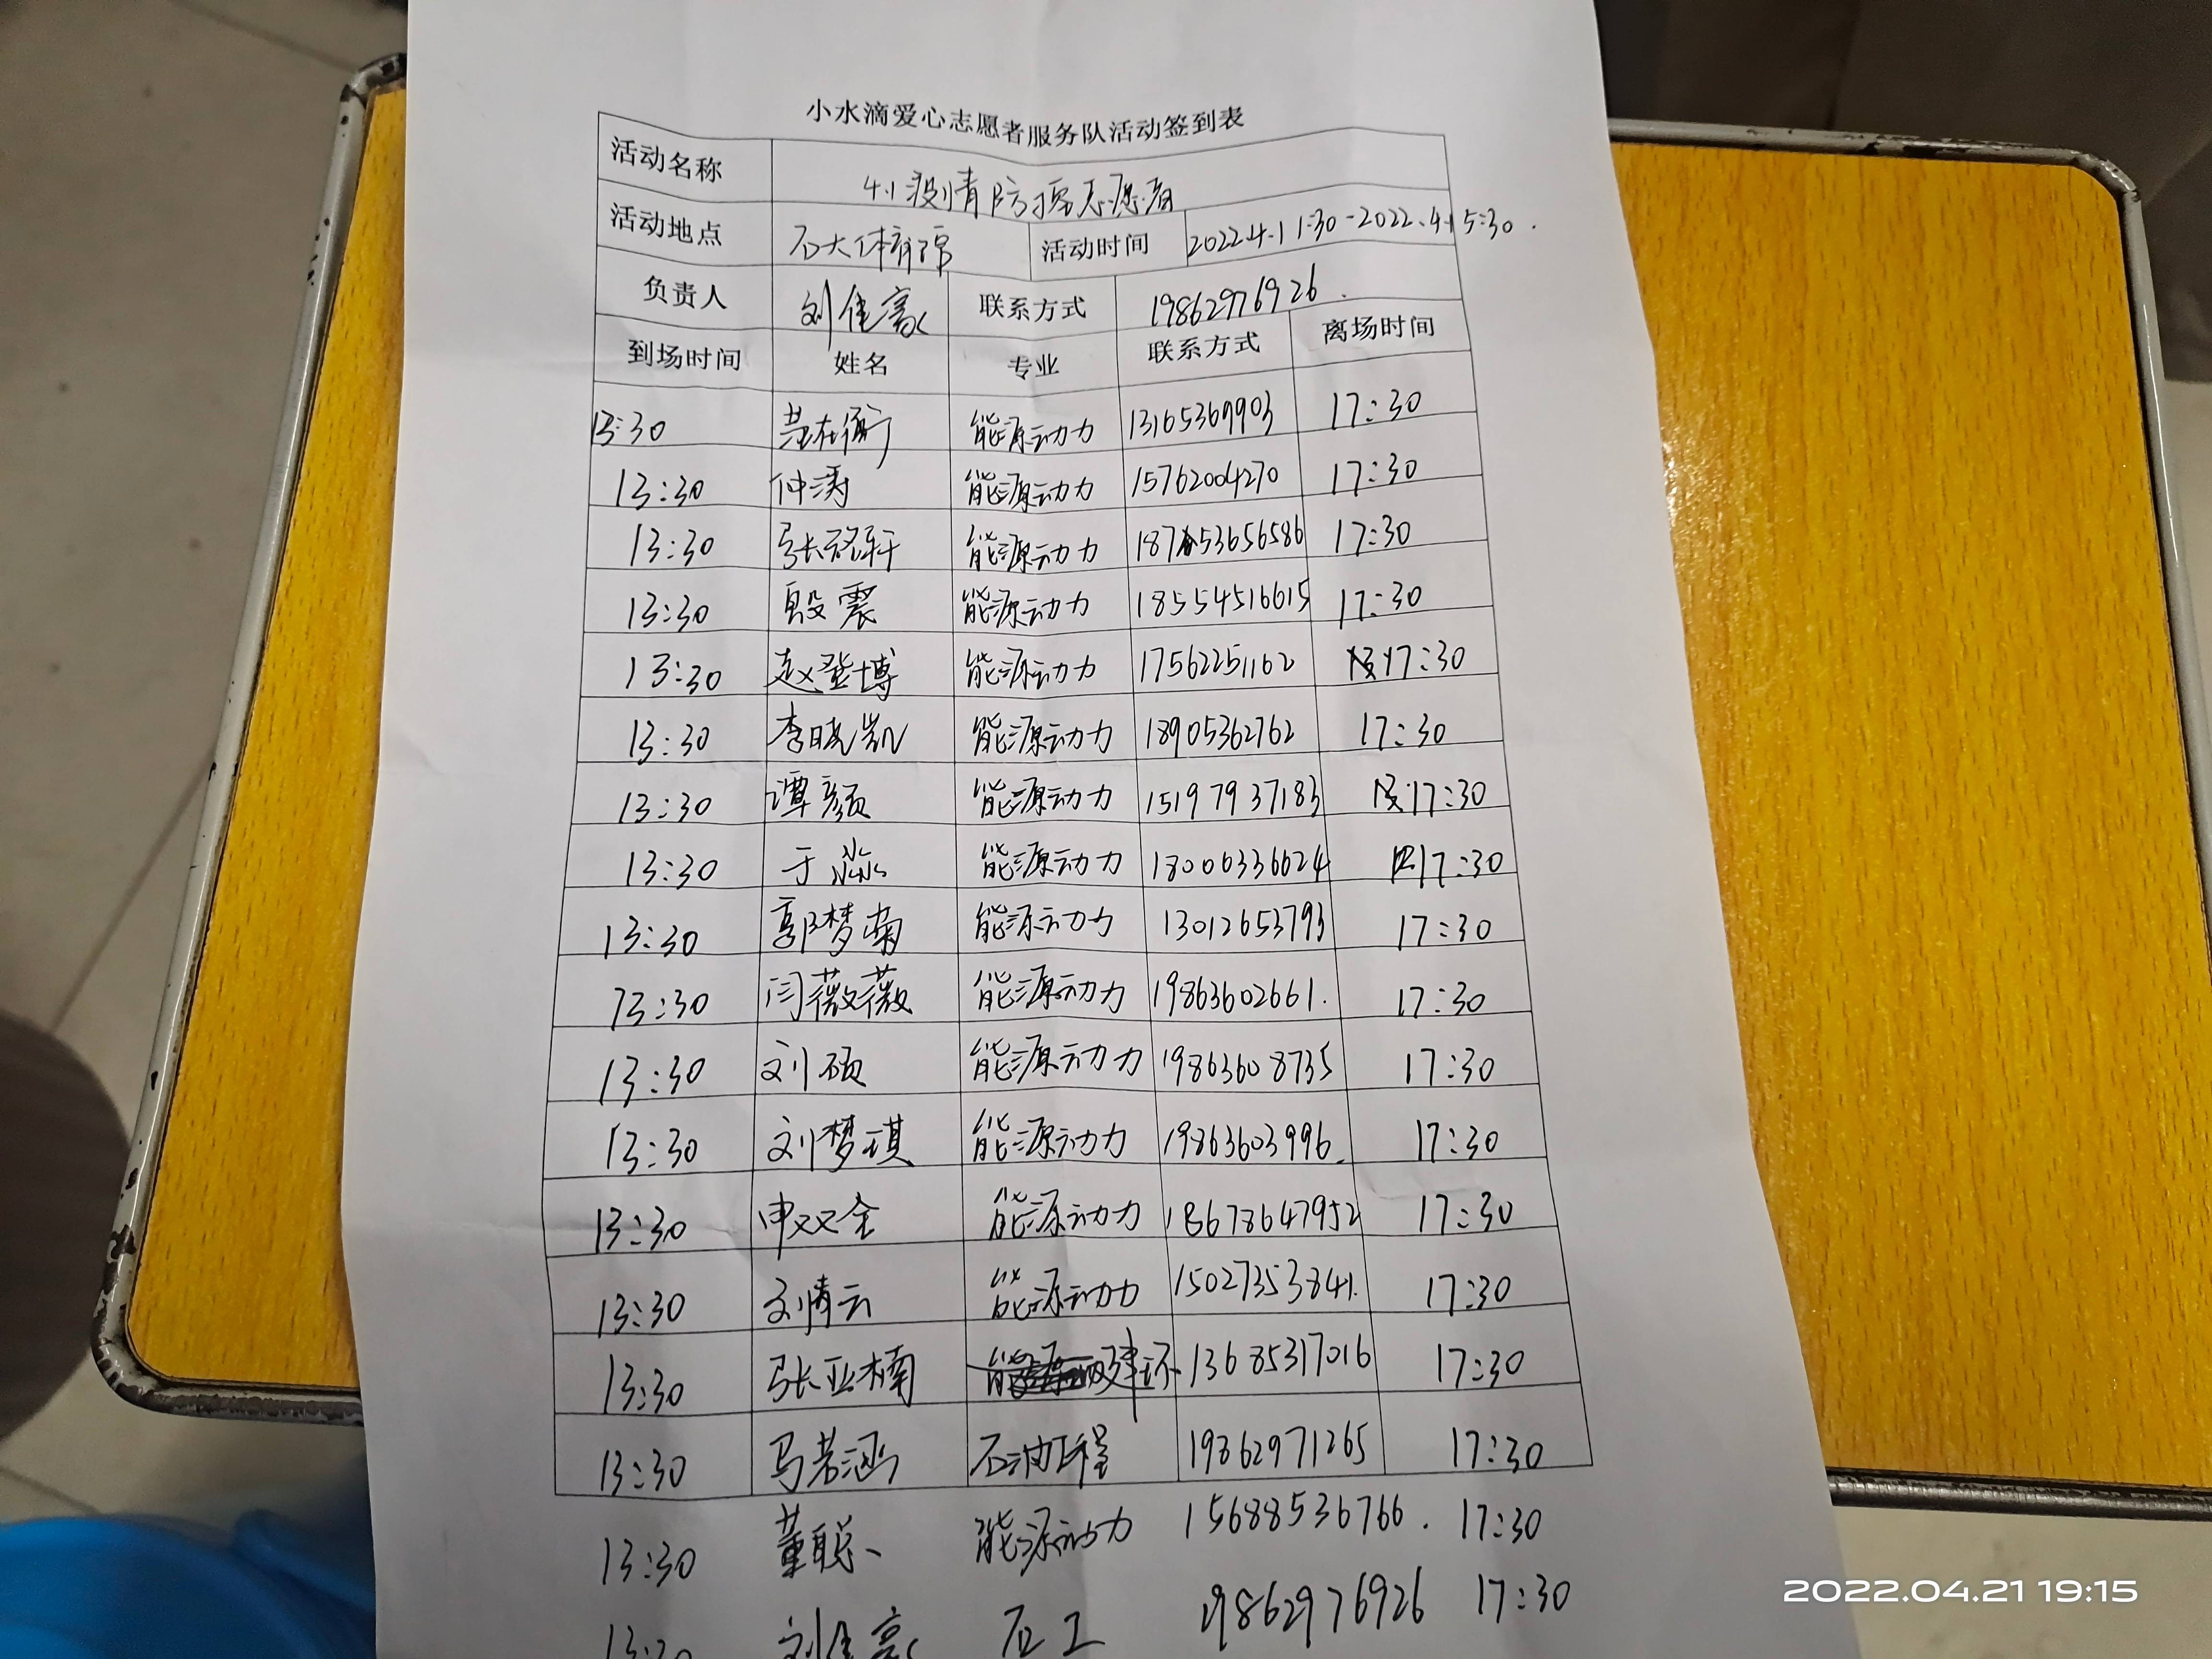 小水滴爱心志愿者服务队活动签到表
活动名称 4.1疫情防控志愿者
活动地点 石大体育馆 活动时间 2022.4.1 1:30-2022.4.1 5:30.
负责人 刘佳豪 联系方式 19862976926.
到场时间 姓名 专业 联系方式 离场时间
13:30 能源动力 13165369903 17:30
13:30 仲涛 能源动力 15762004270 17:30
13:30 张铭轩 能源动力 18753656586 17:30
13:30 殷震 能源动力 18554516615 17:30
13:30 赵登博 能源动力 17562251162 17:30
13:30 李晓凯 能源动力 18905362762 17:30
13:30 谭颜 能源动力 15197937183 17:30
13:30 于淼 能源动力 18006336624 17:30
13:30 郭梦菊 能源动力 13012653793 17:30
13:30 闫薇薇 能源动力 19863602661. 17:30
13:30 刘硕 能源动力 19863608735 17:30
13:30 刘梦琪 能源动力 19863603996. 17:30
13:30 申双全 能源动力 18678647952 17:30
13:30 刘倩云 能源动力 15027353841. 17:30
13:30 张亚楠 建环 13685317016 17:30
13:30 马若涵 石油工程 19862971265 17:30
13:30 董聪 能源动力 15688536766. 17:30
13:30 刘佳豪 石工 19862976926 17:30
2022.04.21 19:15